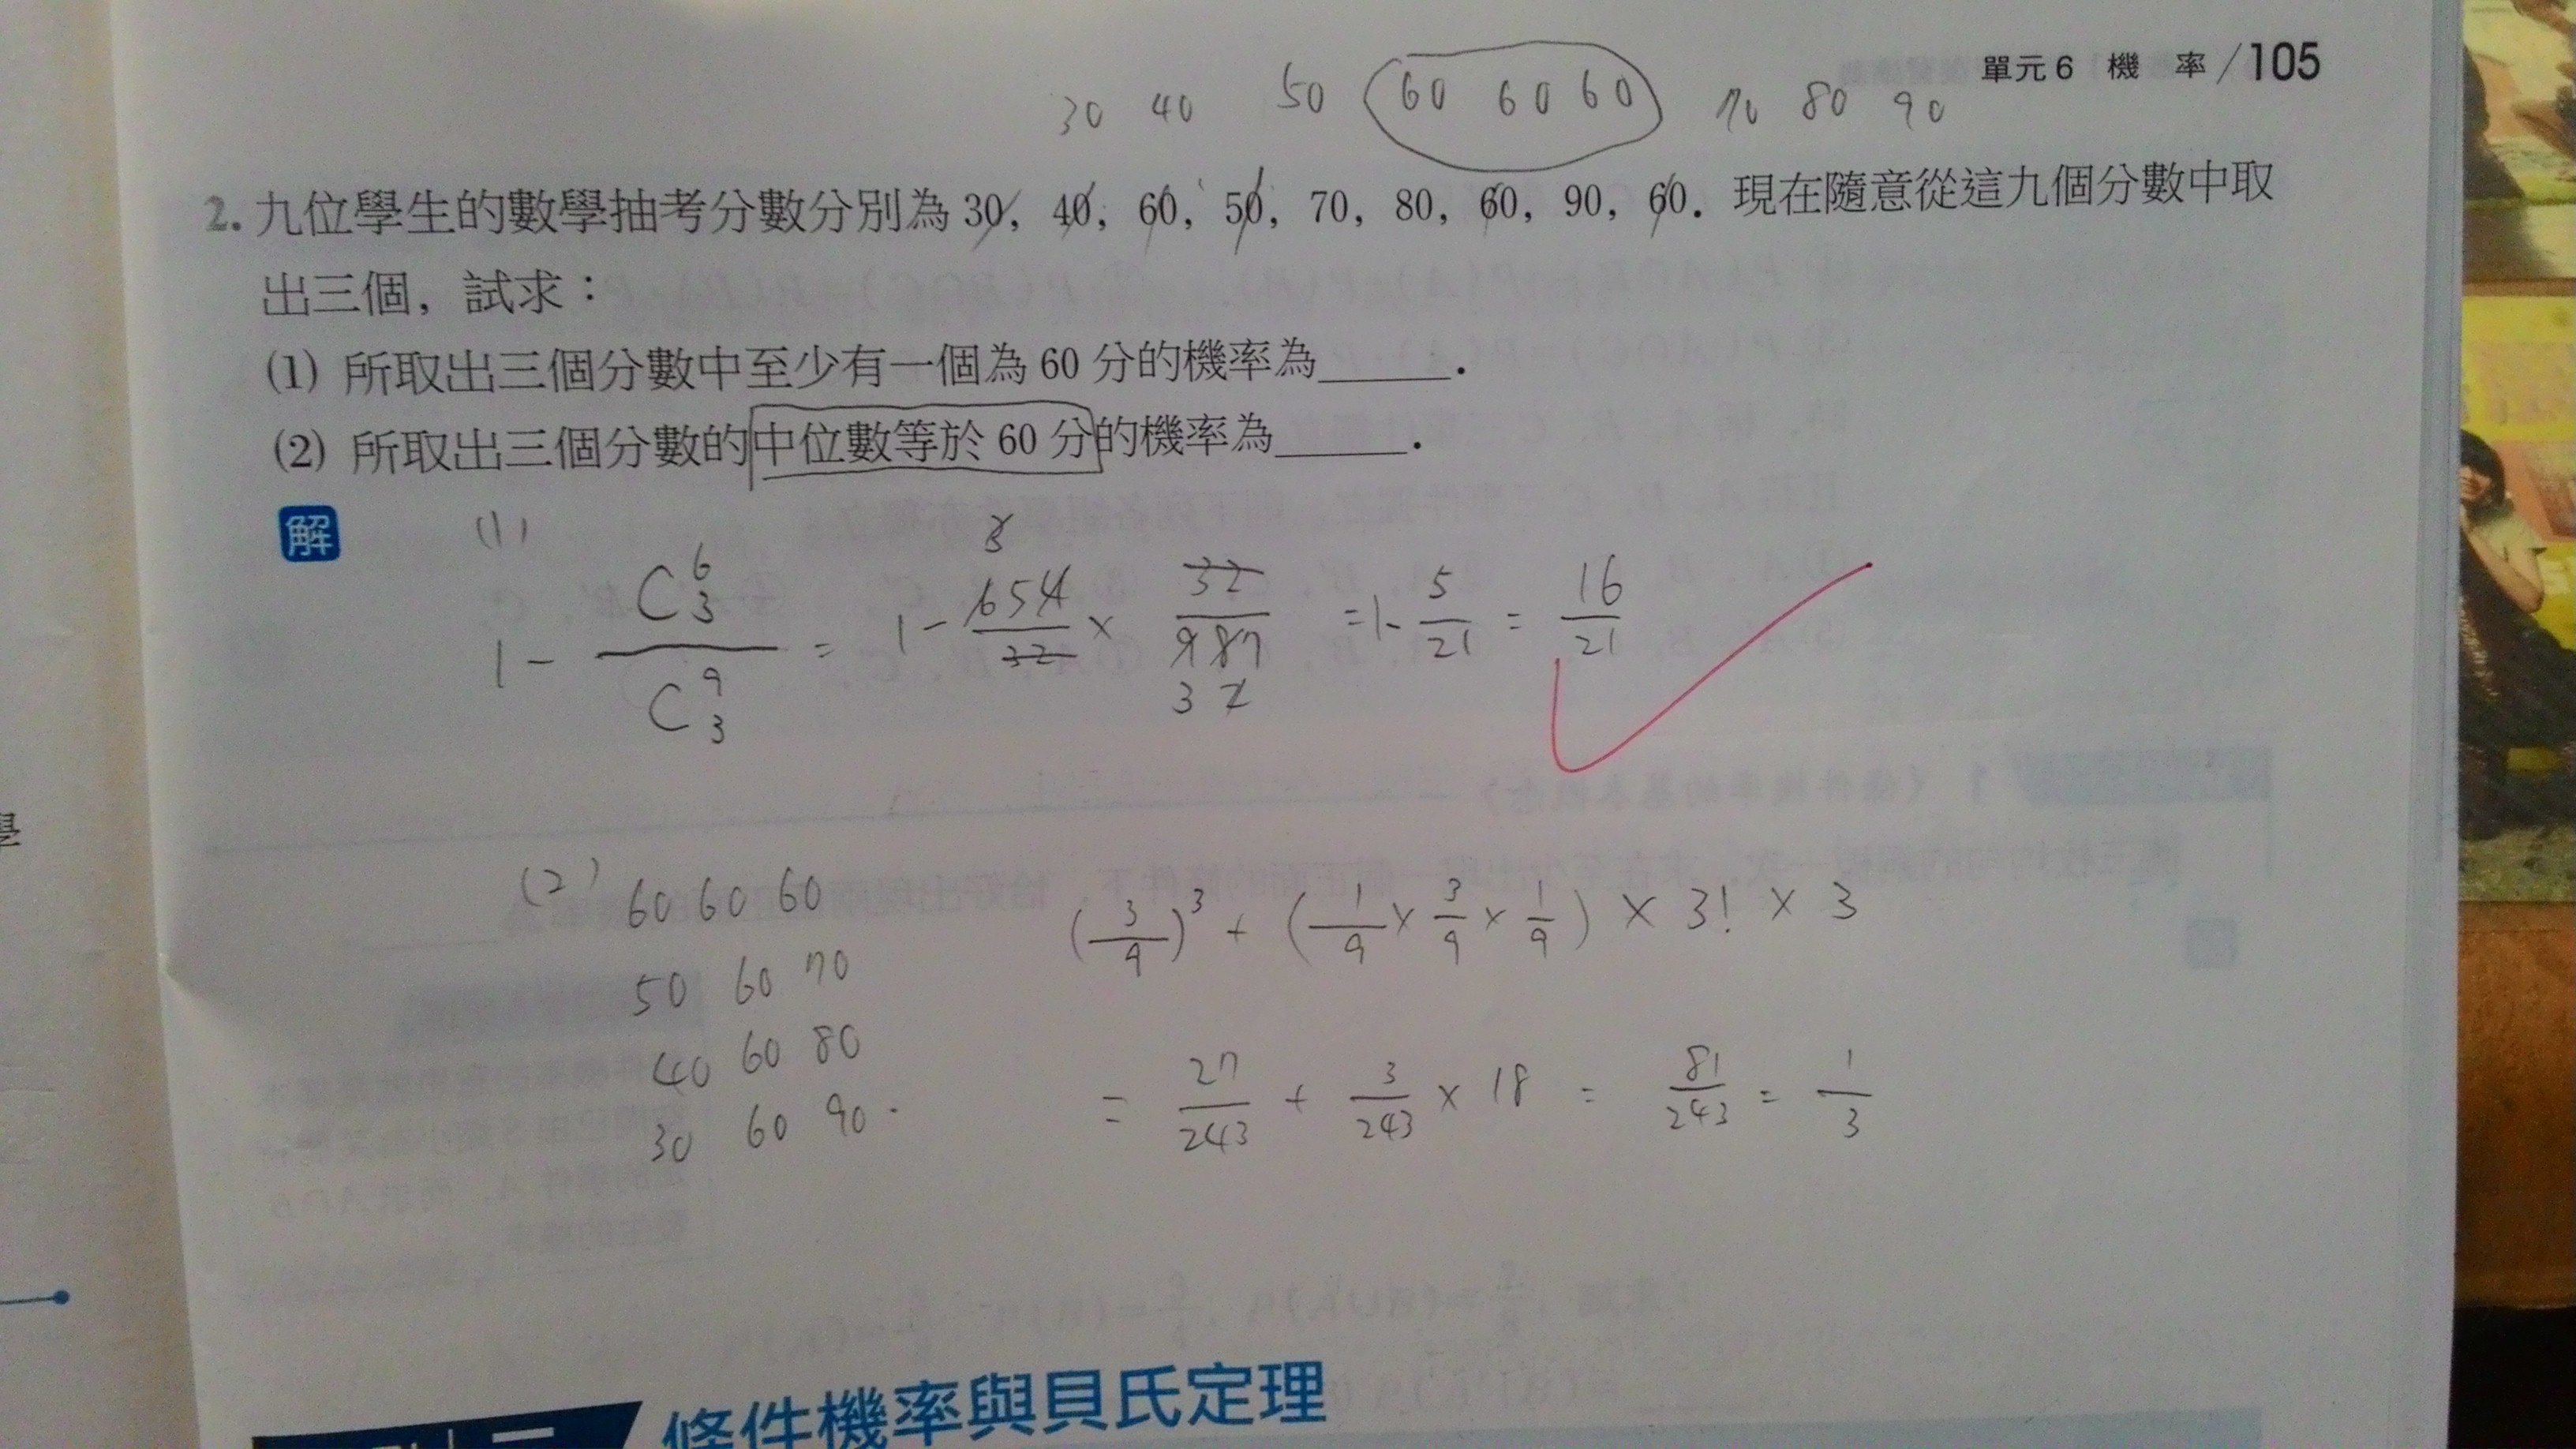 單元6 機 率/105
30 40 50 60 60 60 70 80 90
2. 九位學生的數學抽考分數分別為 30, 40, 60, 50, 70, 80, 60, 90, 60. 現在隨意從這九個分數中取
出三個, 試求：
(1) 所取出三個分數中至少有一個為 60 分的機率為______.
(2) 所取出三個分數的中位數等於 60 分的機率為______.
解
(1) 1 - C^6_3 / C^9_3 = 1 - 654/32 × 32/987 = 1 - 5/21 = 16/21
(2) 60 60 60
50 60 70
40 60 80
30 60 90
(3/9)^3 + (1/9 × 3/9 × 1/9) × 3! × 3
= 27/243 + 3/243 × 18 = 81/243 = 1/3
條件機率與貝氏定理